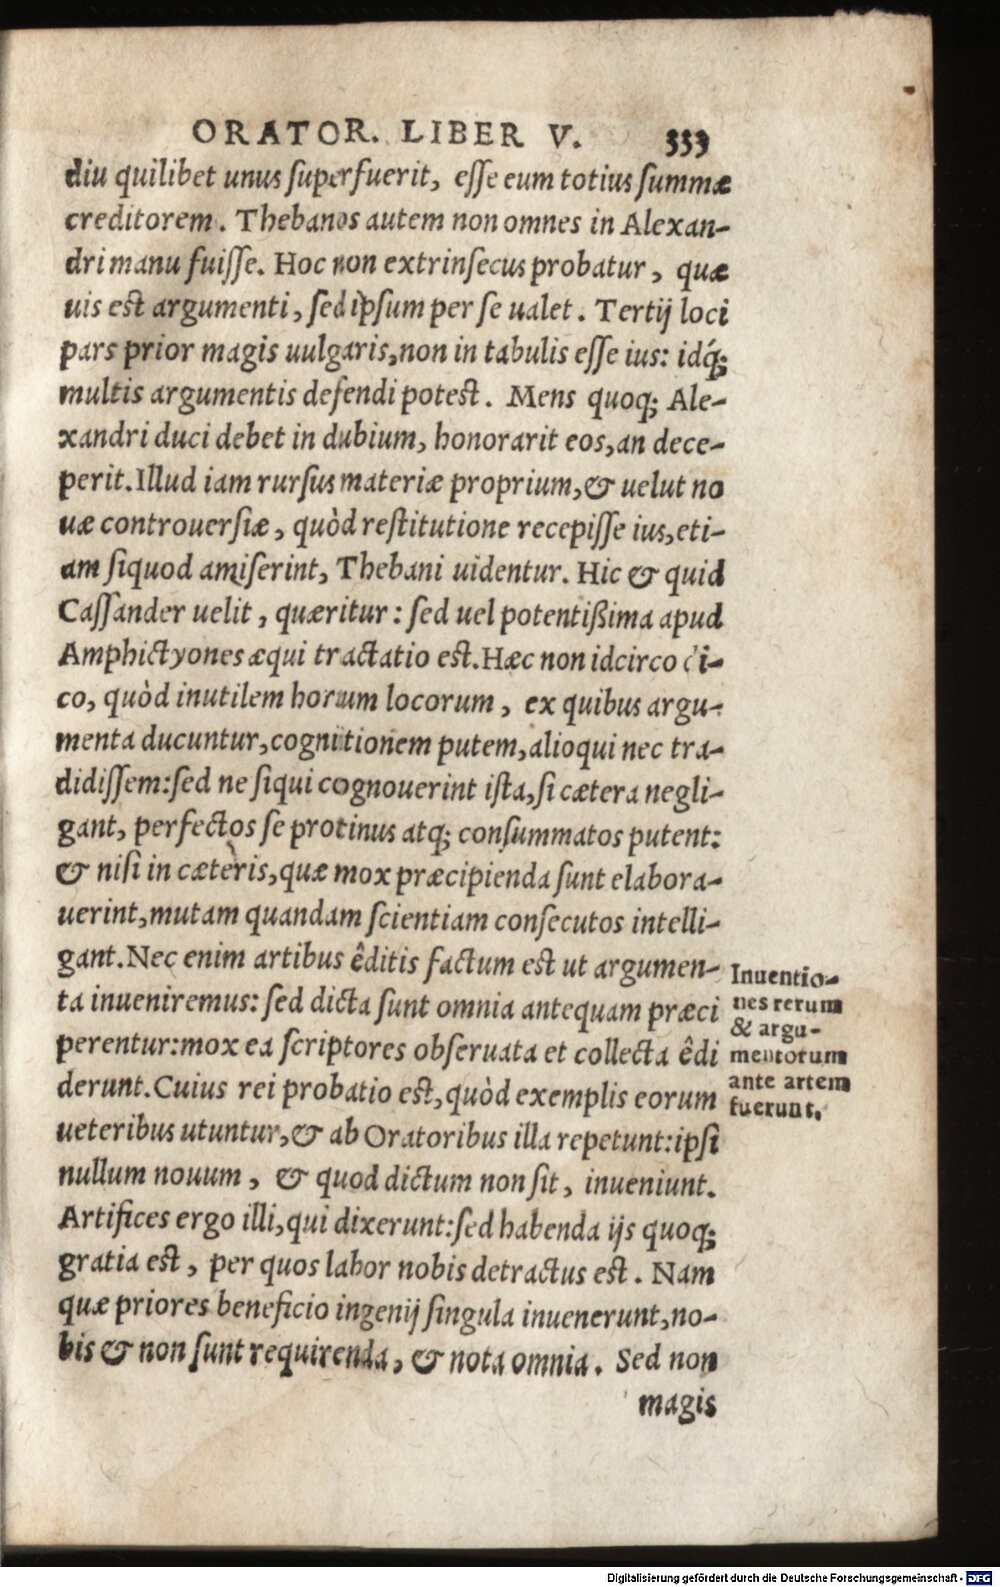 ORATOR. LIBER V. 333
diu quilibet unus superfuerit, esse eum totius summæ
creditorem. Thebanos autem non omnes in Alexan-
dri manu fuisse. Hoc non extrinsecus probatur, quæ
uis est argumenti, sed ipsum per se ualet. Tertij loci
pars prior magis uulgaris, non in tabulis esse ius: idq́;
multis argumentis defendi potest. Mens quoq; Ale-
xandri duci debet in dubium, honorarit eos, an dece-
perit. Illud iam rursus materiæ proprium, & uelut no
uæ controuersiæ, quòd restitutione recepisse ius, eti-
am siquod amiserint, Thebani uidentur. Hic & quid
Cassander uelit, quæritur: sed uel potentißima apud
Amphictyones æqui tractatio est. Hæc non idcirco di-
co, quòd inutilem horum locorum, ex quibus argu-
menta ducuntur, cognitionem putem, alioqui nec tra-
didissem: sed ne siqui cognouerint ista, si cætera negli-
gant, perfectos se protinus atq; consummatos putent:
& nisi in cæteris, quæ mox præcipienda sunt elabora-
uerint, mutam quandam scientiam consecutos intelli-
gant. Nec enim artibus êditis factum est ut argumen-
ta inueniremus: sed dicta sunt omnia antequam præci
perentur: mox ea scriptores obseruata et collecta êdi
derunt. Cuius rei probatio est, quòd exemplis eorum
ueteribus utuntur, & ab Oratoribus illa repetunt: ipsi
nullum nouum, & quod dictum non sit, inueniunt.
Artifices ergo illi, qui dixerunt: sed habenda ijs quoq;
gratia est, per quos labor nobis detractus est. Nam
quæ priores beneficio ingenij singula inuenerunt, no-
bis & non sunt requirenda, & nota omnia. Sed non
magis
Inuentio-
nes rerum
& argu-
mentorum
ante artem
fuerunt.
Digitalisierung gefördert durch die Deutsche Forschungsgemeinschaft - DFG